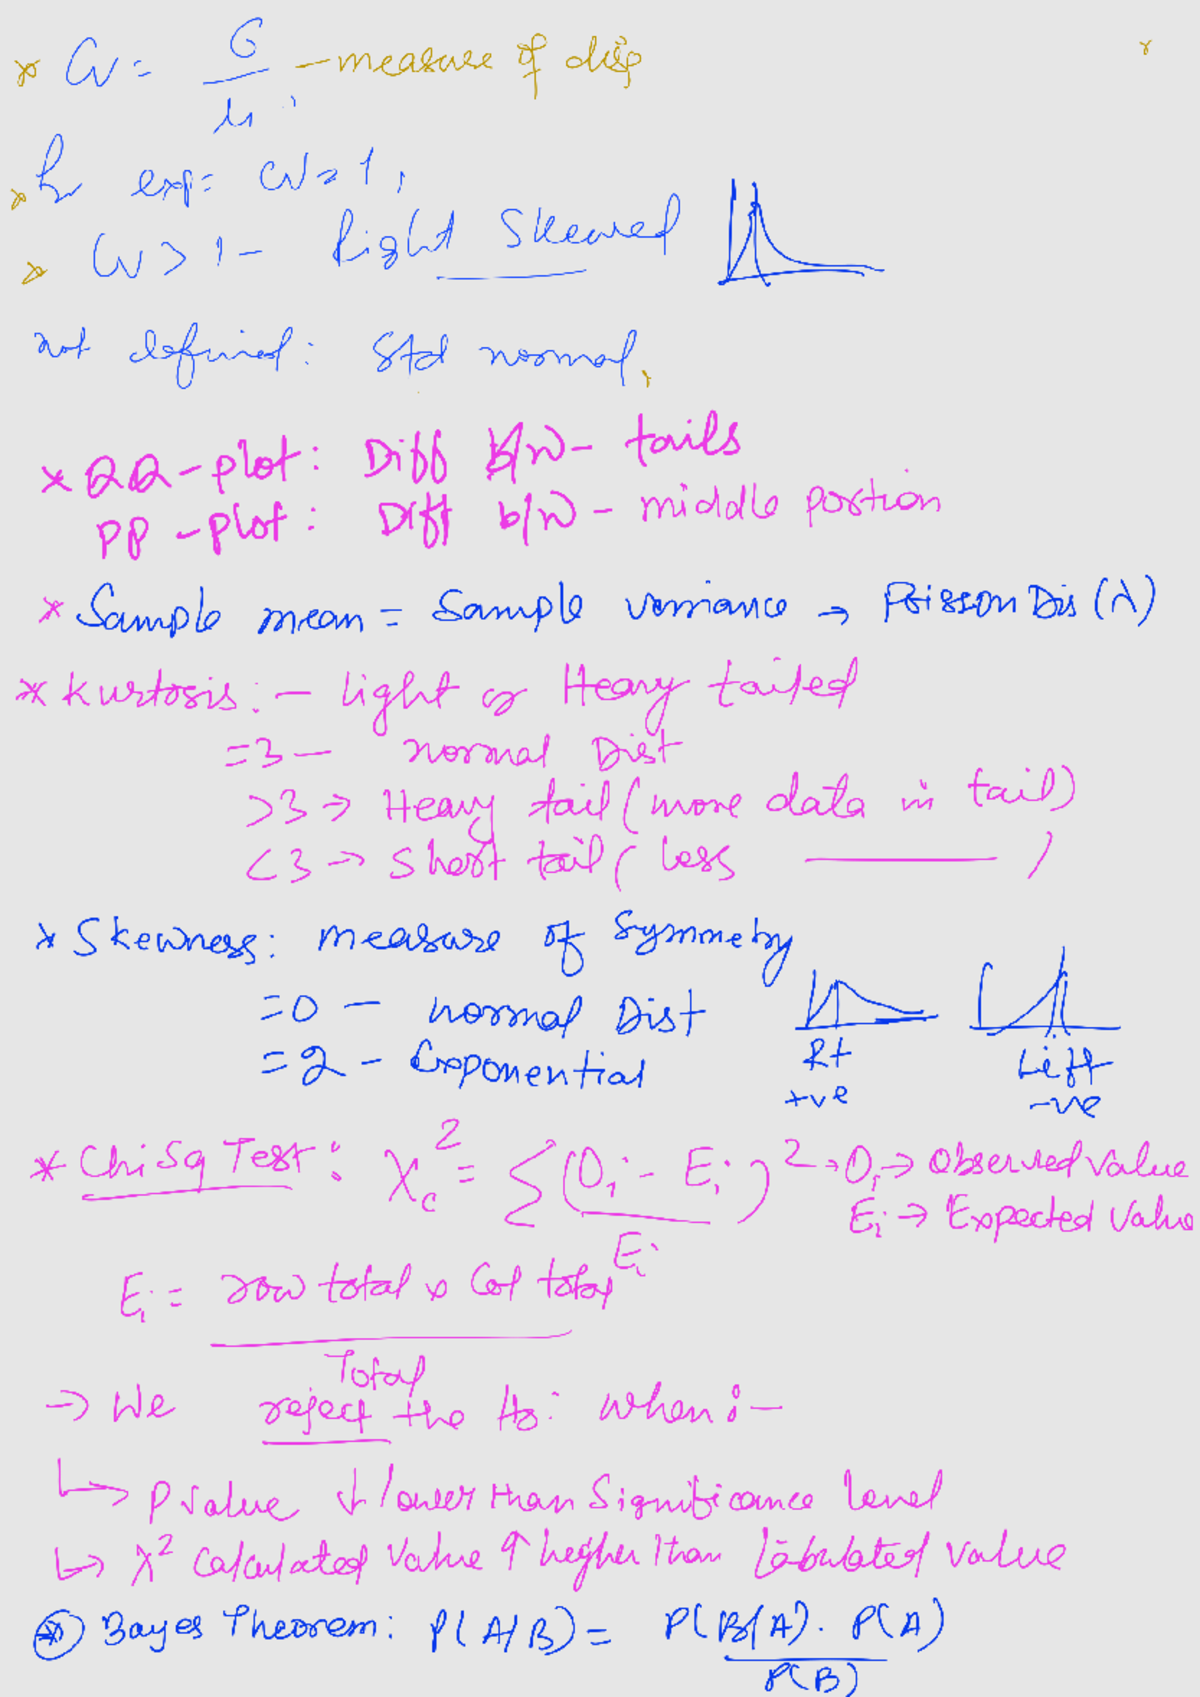 * CV = σ/μ - measure of disp
* for exp = CV = 1,
* CV > 1 - Right Skewed
not defined: Std normal,
* QQ-plot: Diff b/w - tails
PP-plot: Diff b/w - middle portion
* Sample mean = Sample variance → Poisson Dis (λ)
* Kurtosis: - light or Heavy tailed
= 3 - normal Dist
> 3 → Heavy tail (more data in tail)
< 3 → Short tail ( less ——— )
* Skewness: measure of Symmetry
= 0 - normal Dist
= 2 - Exponential
Rt
+ve
Left
-ve
* Chi Sq Test: χc² = Σ (Oi - Ei)² / Ei
Oi → Observed value
Ei → Expected Value
Ei = row total × Col total / Total
→ We reject the H0: when :-
↳ P value ↓ lower than Significance level
↳ χ² Calculated value ↑ higher than tabulated value
* Bayes Theorem: P(A/B) = P(B/A). P(A) / P(B)